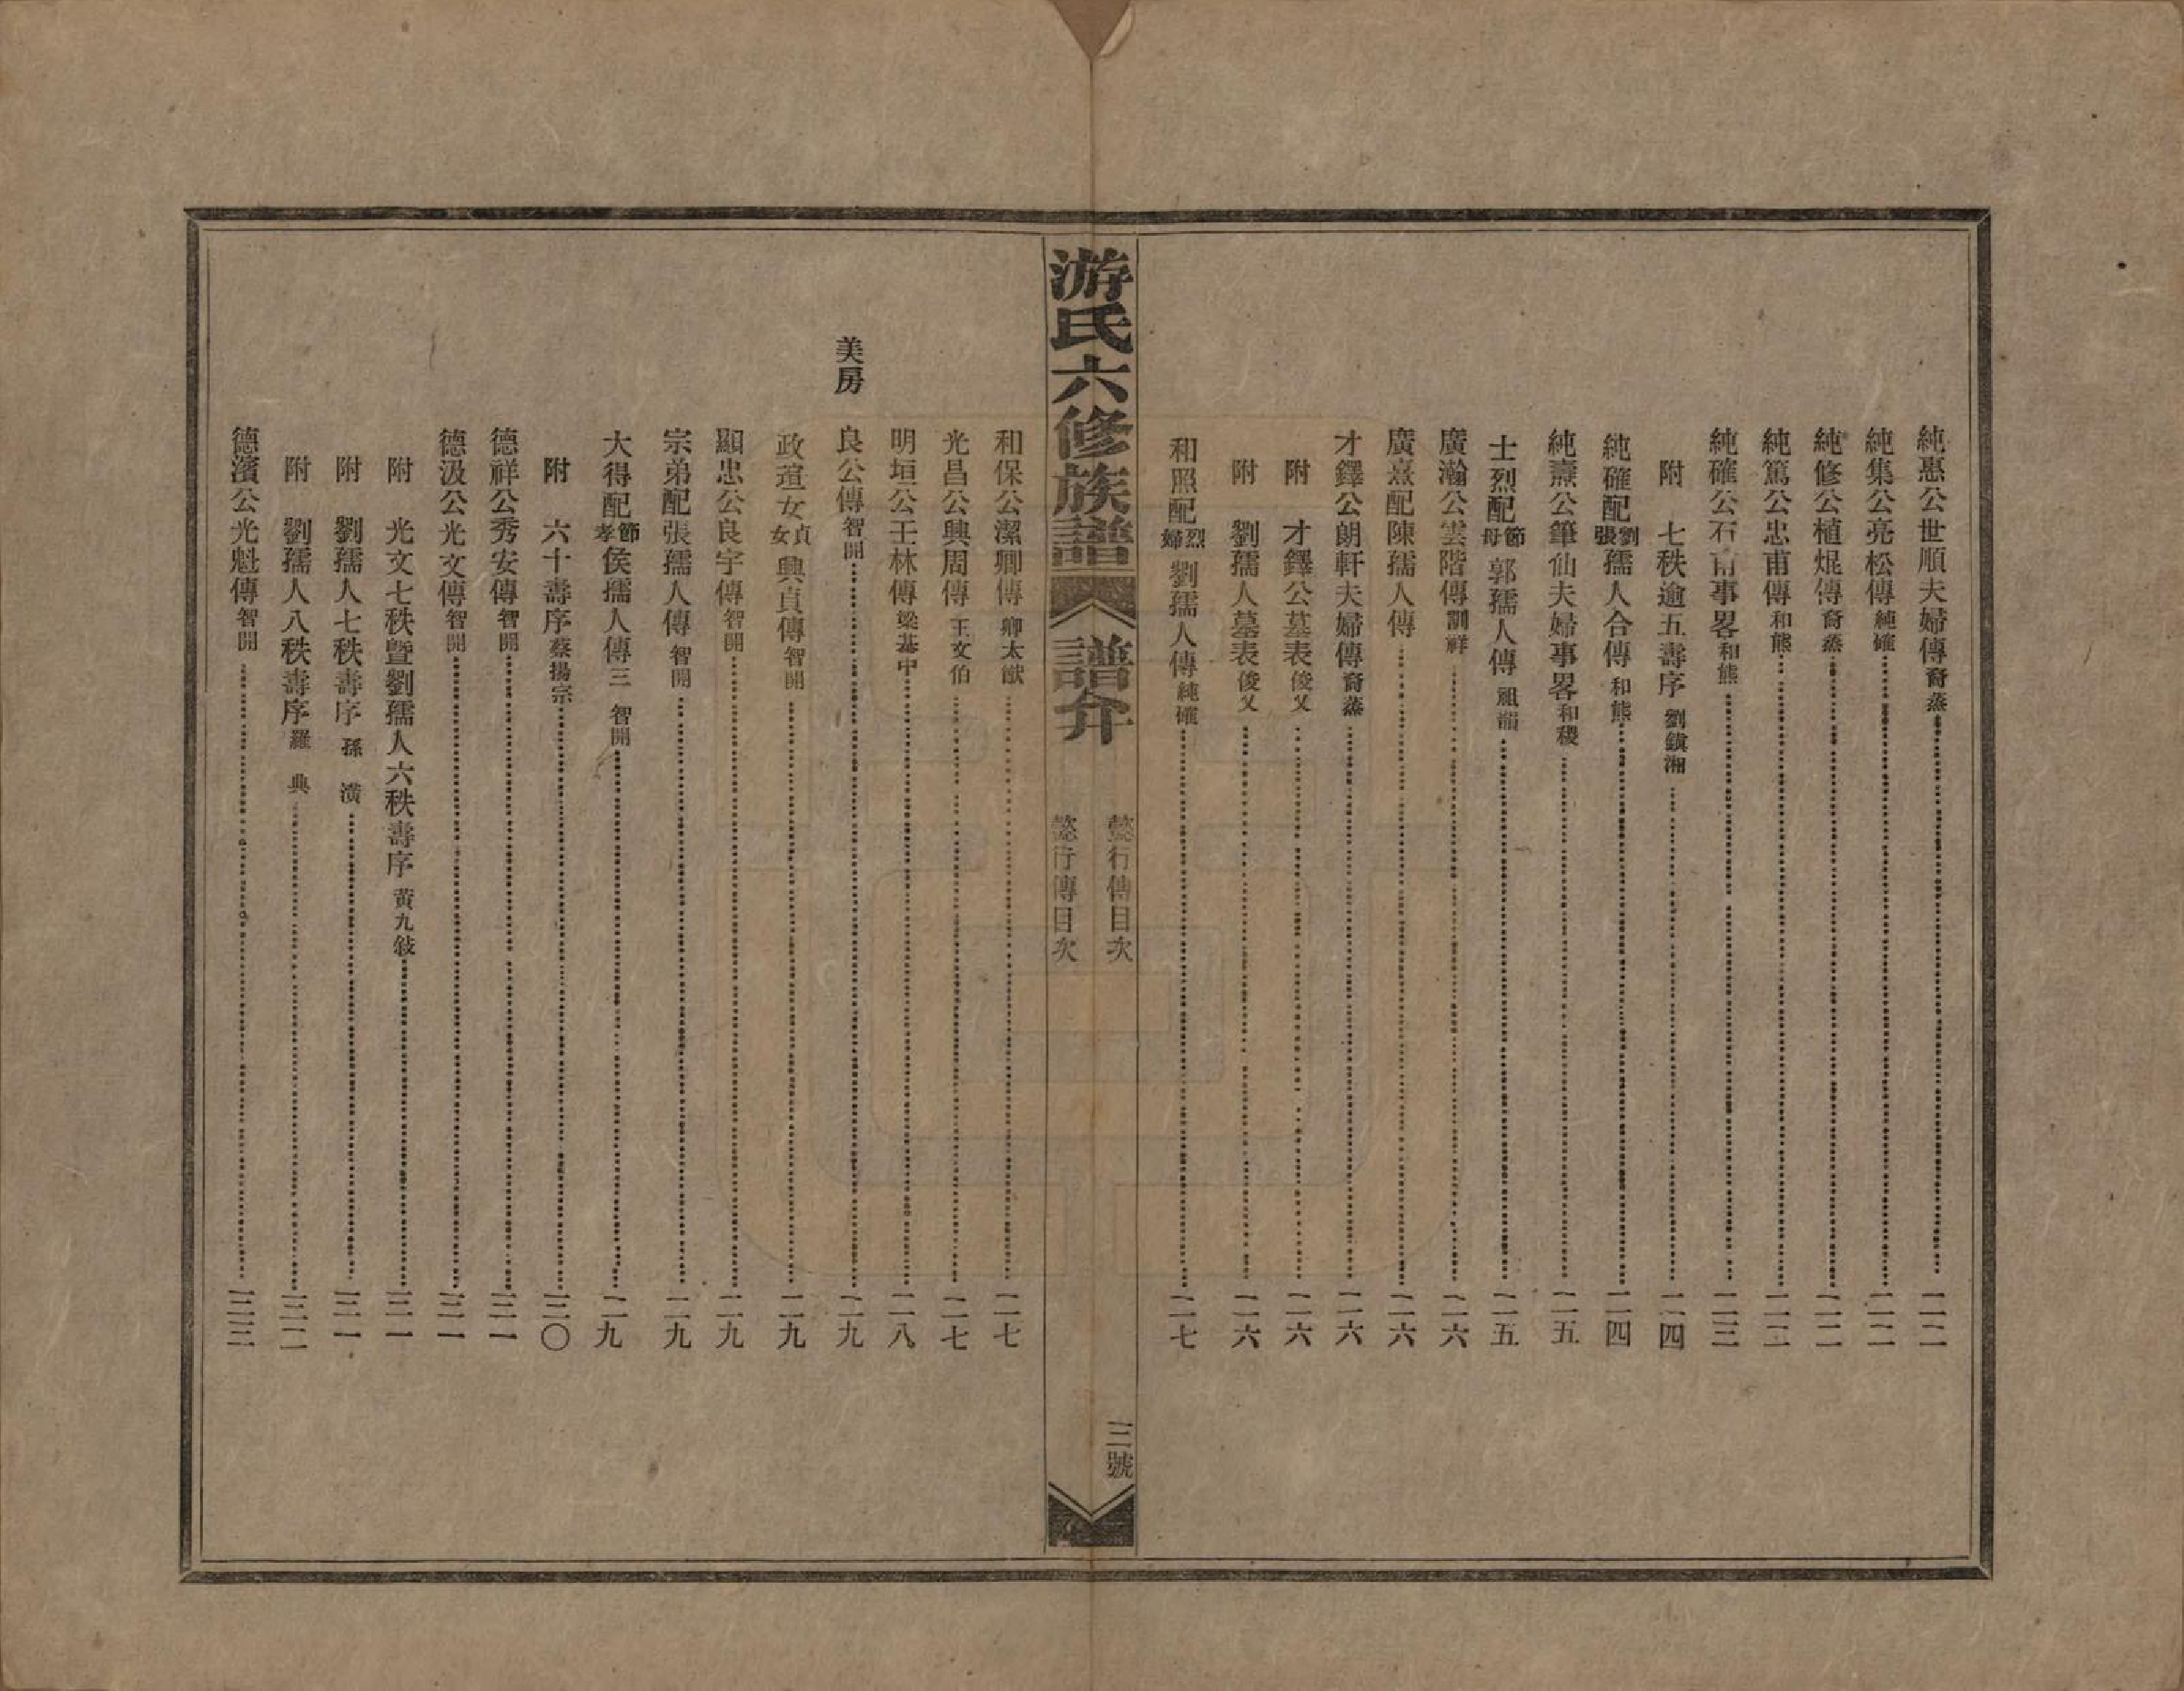 純惠公世順夫婦傳裔蒸二二
純集公亮松傳純確二二
純修公植焜傳裔蒸二二
純篤公忠甫傳和熊二二
純確公石甫事畧和熊二三
附 七秩逾五壽序劉鎮湘二四
純確配劉張孺人合傳和熊二四
純燾公筆仙夫婦事畧和稷二五
士烈配節母郭孺人傳二五
廣瀚公雲階傳訓祥二六
廣熹配陳孺人傳二六
才鐸公朗軒夫婦傳裔蒸二六
附 才鐸公墓表俊乂二六
附 劉孺人墓表俊乂二六
和照配烈婦劉孺人傳純確二七
懿行傳目次
三號
游氏六修族譜
譜介
懿行傳目次
和保公潔卿傳卿太猷二七
光昌公興周傳王文伯二七
明垣公王林傳梁基中二八
美房
良公傳智開二九
政瑄女貞女興貞傳智開二九
顯忠公良宇傳智開二九
宗弟配張孺人傳智開二九
大得配節孝侯孺人傳三 智開二九
附 六十壽序蔡揚宗三〇
德祥公秀安傳智開三一
德汲公光文傳智開三一
附 光文七秩暨劉孺人六秩壽序黃九敍三一
附 劉孺人七秩壽序孫 潢三一
附 劉孺人八秩壽序羅 典三二
德濱公光魁傳智開三三